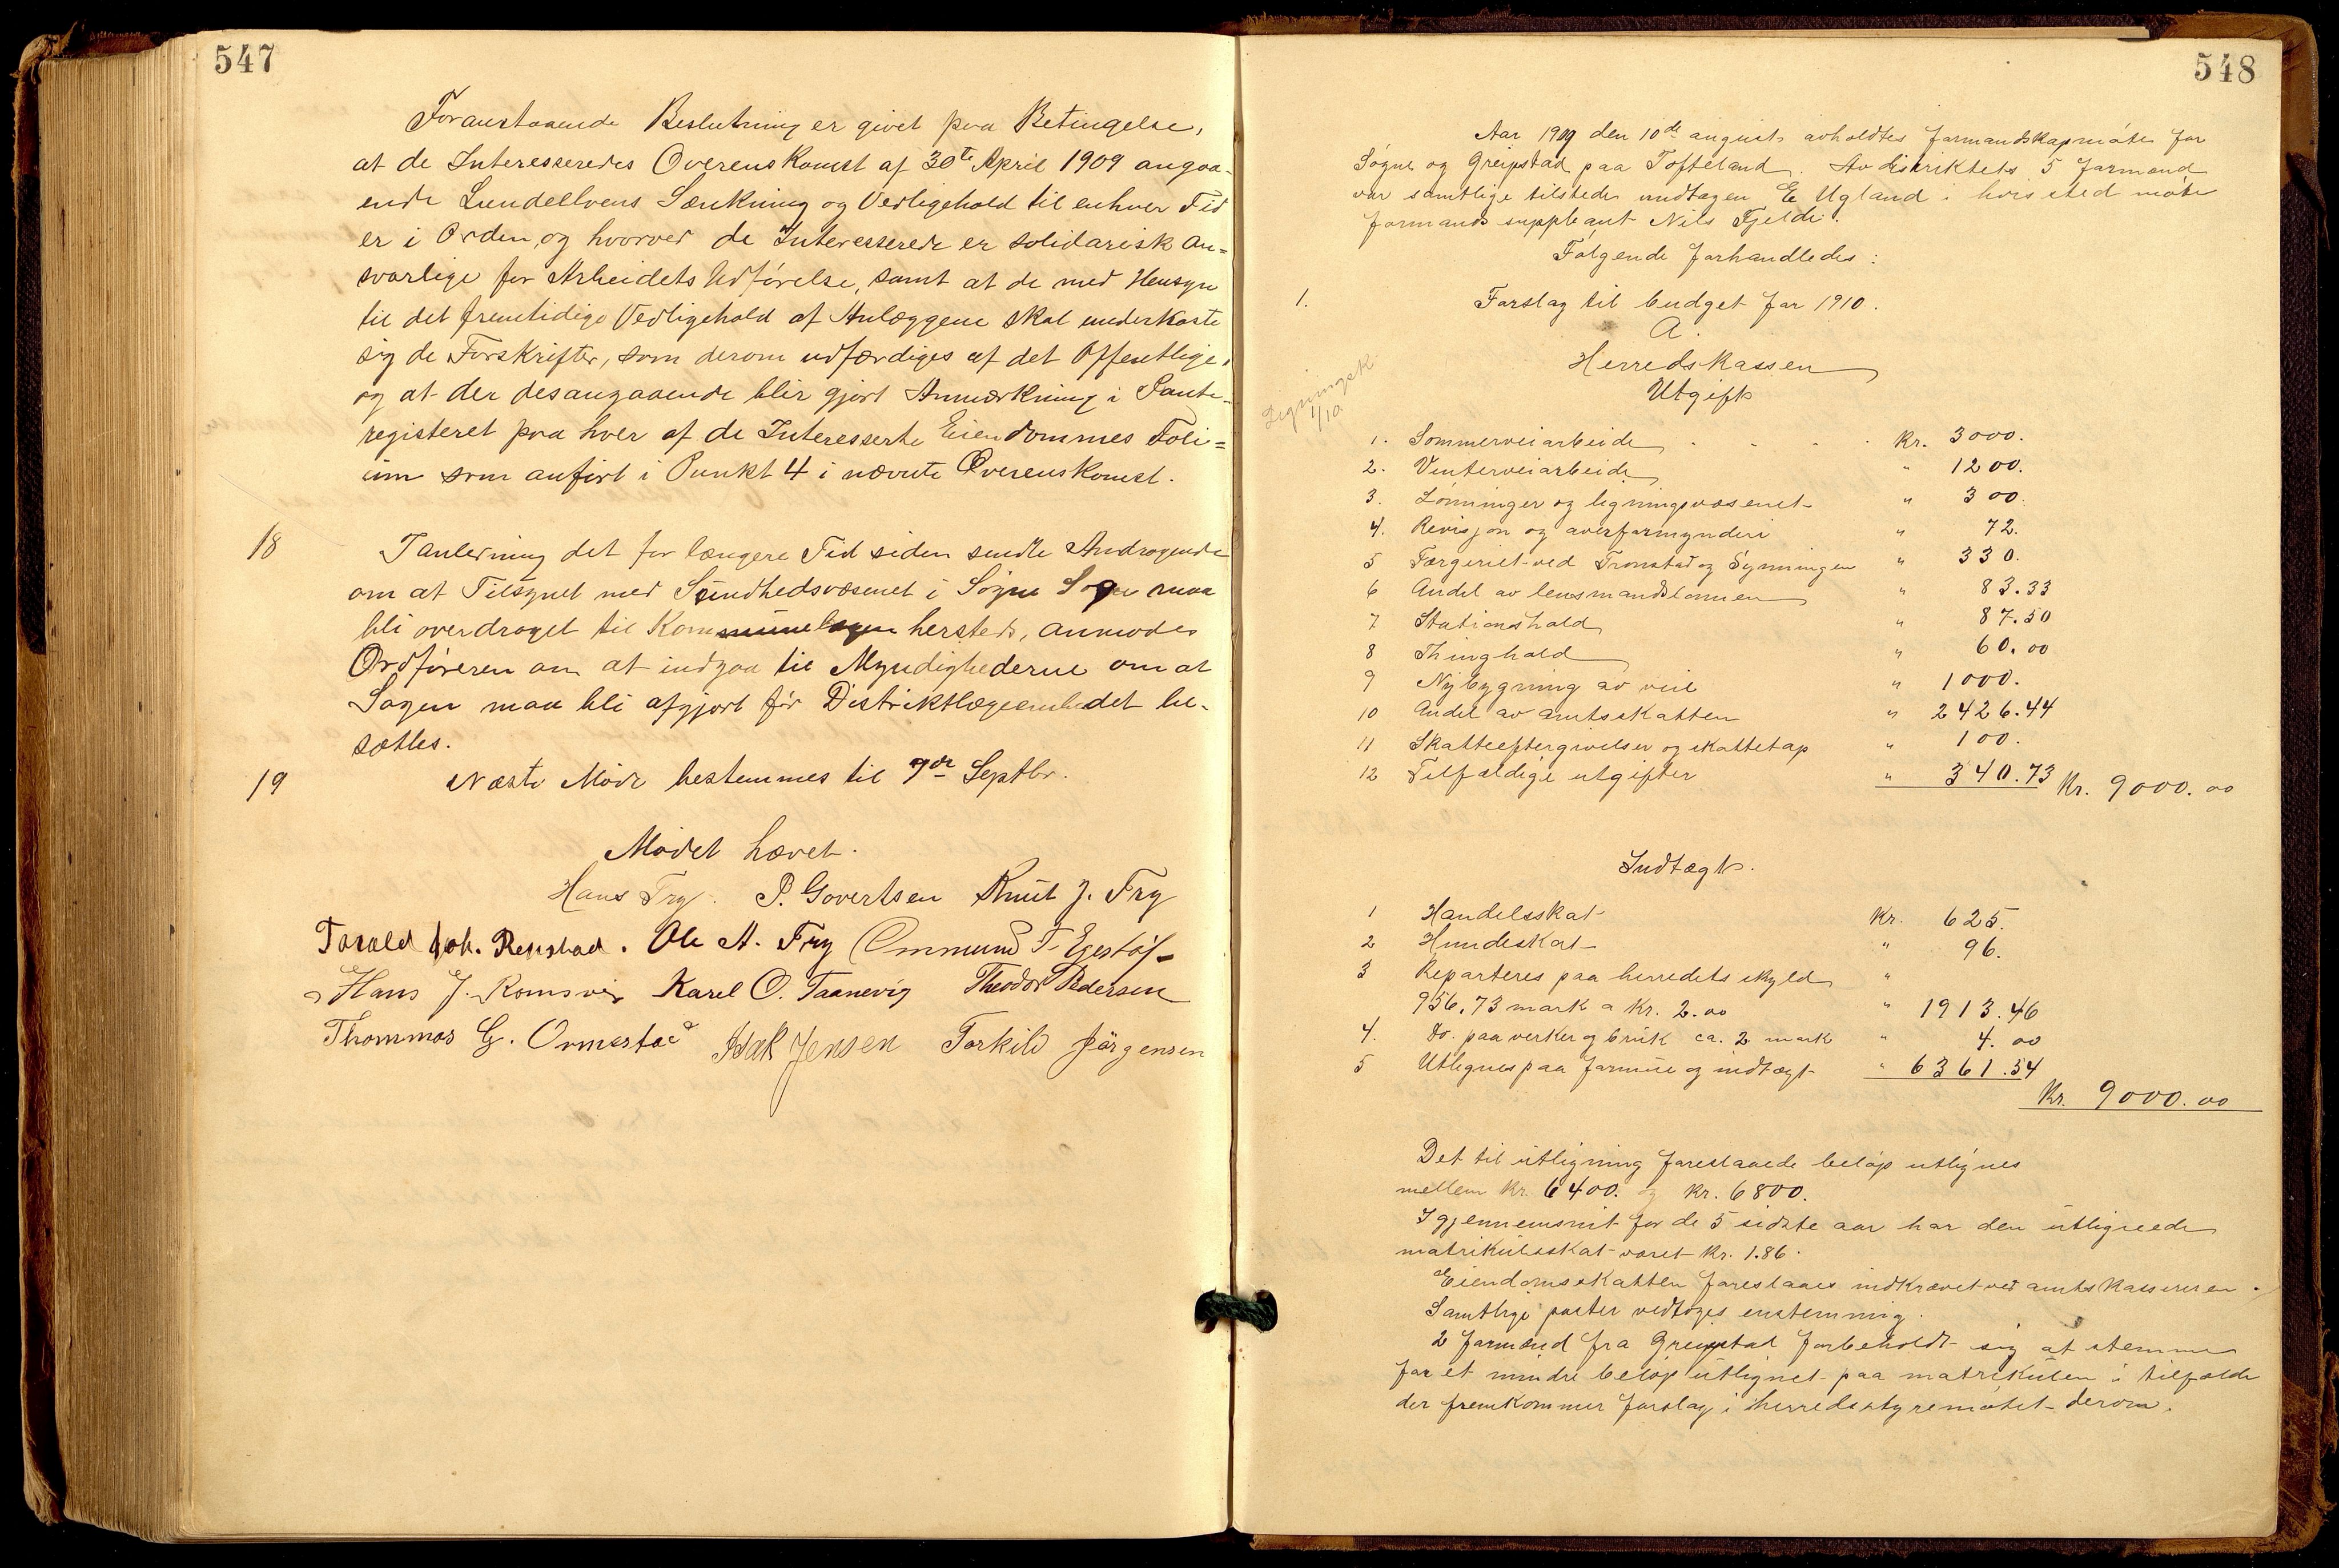 547
Foranstaaende Beslutning er givet paa Betingelse,
at de Interesseredes Overenskomst af 30te April 1909 angaa-
ende Lundelvens Sænkning og Vedligehold til enhver Tid
er i Orden, og hvorved de Interesserede er solidarisk an=
svarlige for Arbeidets Udførelse, samt at de med Hensyn
til det fremtidige Vedligehold af Anlæggene skal underkaste
sig de Forskrifter, som derom udfærdiges af det Offentlige,
og at der desangaaende blir gjort Anmærkning i Pante-
registeret paa hver af de Interesserte Eiendommes Foli=
um som anført i Punkt 4 i nævnte Overenskomst.
18 I anledning det for længere Tid siden sendte Andragende
om at Tilsynet med Sundhedsvæsenet i Søgne Sogn maa
bli overdraget til Kommunelægen hersteds, anmodes
Ordføreren om at indgaa til Myndighederne om at
Sagen maa bli afgjort før Distriktlægeembedet be-
sættes.
19 Næste Møde bestemmes til 7de Septbr.
Mødet hævet.
Hans Try. P. Govertsen Knut J. Try
Torald Joh. Repstad. Ole A. Try Ommund T. Egestøl
Hans J. Romsvig Karel O. Taanevig Theodor Pedersen
Thommas G. Ormestad Isak Jensen Torkild Jørgensen
548
Aar 1909 den 10de august avholdtes formandskapmøte for
Søgne og Greipstad paa Tofteland. Av distriktets 5 formænd
var samtlige tilstede undtagen E Ugland i hvis sted møtte
formands suppleant Nils Fjelde.
Følgende forhandledes:
1. Forslag til budget for 1910.
A.
Herredskassen
Utgift
Ligningsk
1/10
1. Sommerveiarbeide kr. 3000.
2. Vinterveiarbeide " 1200.
3. Lønninger og ligningsvæsenet " 300.
4. Revisjon og overformynderi " 72.
5 Færgeriet ved Tronstad og Synningen " 330.
6 Andel av lensmandslønnen " 83.33
7 Stationshold " 87.50
8 Thinghold " 60.00
9 Nybygning av veie " 1000.
10 Andel av amtsskatten " 2426.44
11 Skatteeftergivelser og skattetap " 100.
12 Tilfældige utgifter " 340.73 Kr. 9000.00
Indtægt.
1 Handelsskat Kr. 625.
2 Hundeskat " 96.
3 Reparteres paa herredets skyld "
956.73 mark a Kr. 2.00 " 1913.46
4. Do. paa verker og bruk ca. 2 mark " 4.00
5 Utlignes paa formue og indtægt " 6361.54
Kr. 9000.00
Det til utligning foreslaaede beløp utlignes
mellem kr. 6400. og kr. 6800.
I gjennemsnit for de 5 sidste aar har den utlignede
matrikulsskat været kr. 1.86.
Eiendomsskatten foreslaaes indkrævet ved amtskassereren.
Samtlige poster vedtoges enstemmig.
2 formænd fra Greipstad forbeholdt sig at stemme
for et mindre beløp utlignet paa matrikulen i tilfælde
der fremkommer forslag i herredsstyremøtet derom.